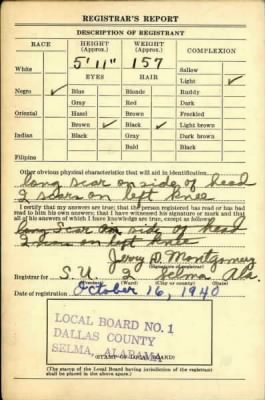 REGISTRAR'S REPORT
DESCRIPTION OF REGISTRANT
RACE HEIGHT (Approx.) WEIGHT (Approx.) COMPLEXION
5'11" 157
White Sallow
EYES HAIR Light ✓
Negro ✓ Blue Blonde Ruddy
Gray Red Dark
Oriental Hazel Brown Freckled
Brown ✓ Black ✓ Light brown
Indian Black Gray Dark brown
Bald Black
Filipino
Other obvious physical characteristics that will aid in identification
long scar on side of head
scars on left knee
I certify that my answers are true; that the person registered has read or has had
read to him his own answers; that I have witnessed his signature or mark and that
all of his answers of which I have knowledge are true, except as follows:
long scar on side of head
scars on left knee
Jerry D. Montgomery
(Signature of registrar)
Registrar for S.U. 3 Selma Ala.
(Precinct) (Ward) (City or county) (State)
Date of registration October 16, 1940
LOCAL BOARD NO. 1
DALLAS COUNTY
SELMA, ALABAMA
(STAMP OF LOCAL BOARD)
(The stamp of the Local Board having jurisdiction of the registrant
shall be placed in the above space.)